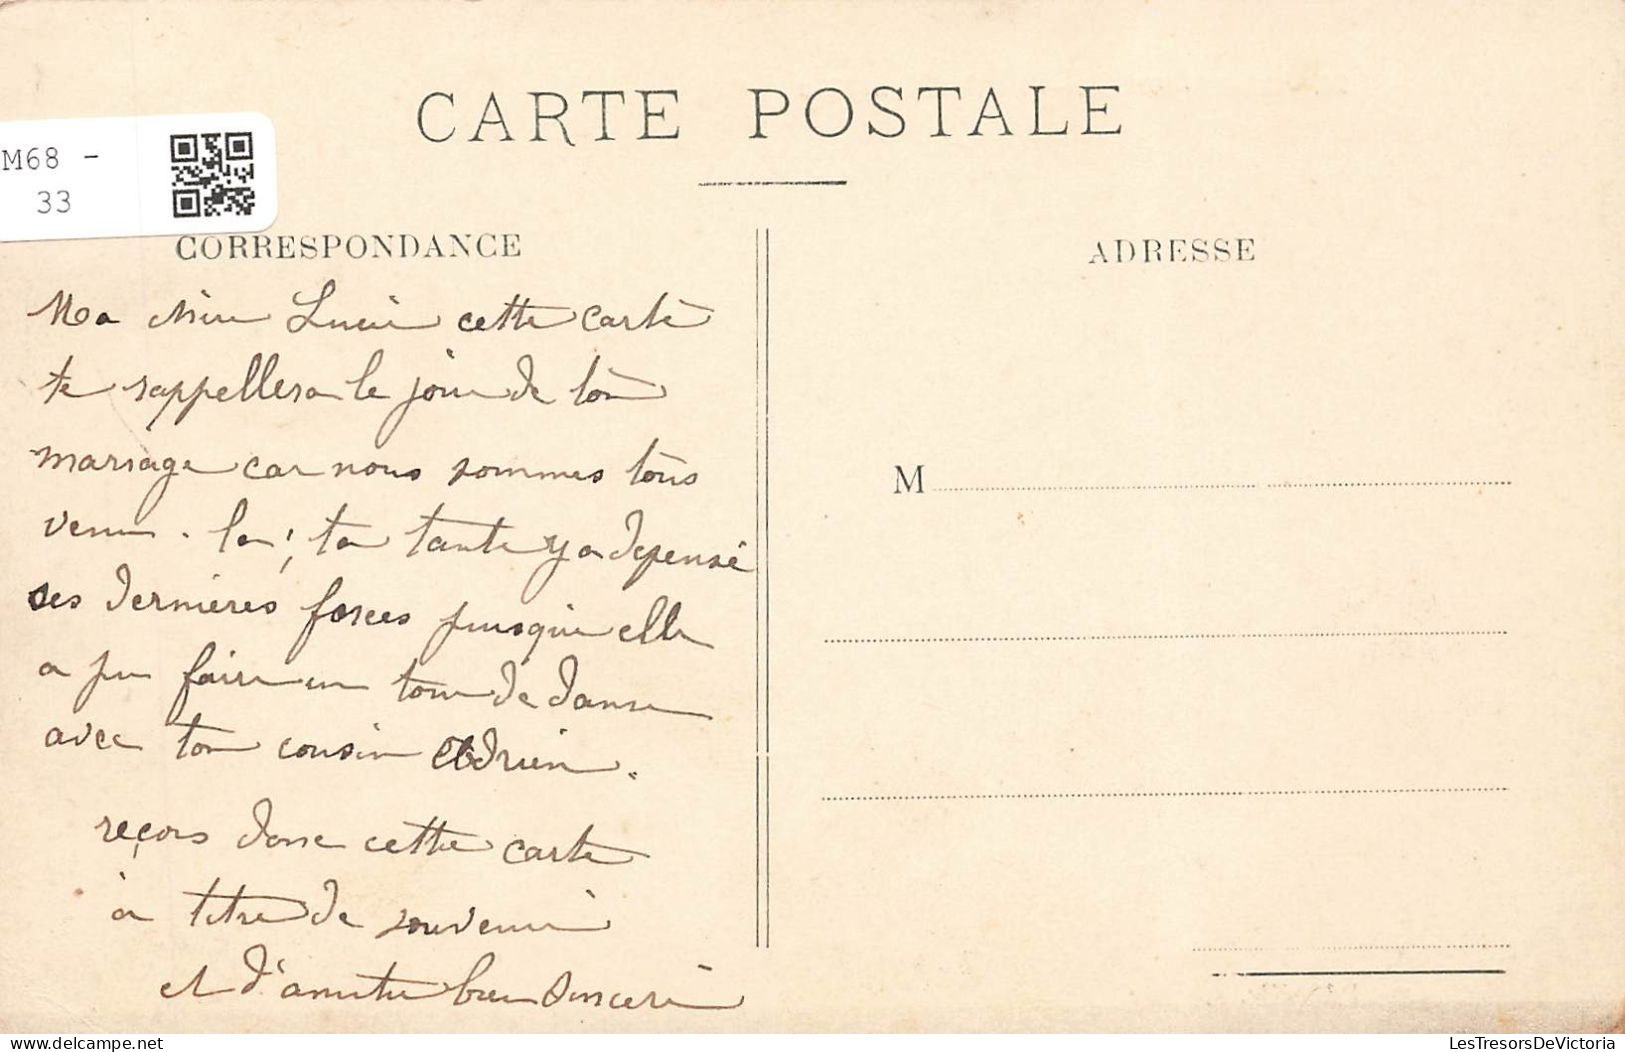 CARTE POSTALE
M68 -
33
CORRESPONDANCE
ADRESSE
Ma chère Lucie cette carte
te rappellera le jour de ton
mariage car nous sommes tous
venu. la, ta tante y a depensé
ses dernières forces puisque elle
a pu faire un tour de danse
avec ton cousin Adrien.
reçois donc cette carte
à titre de souvenir
et d'amitié bien sincère
M
delcampe.net
LesTresorsDeVictoria